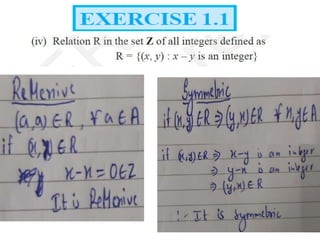 EXERCISE 1.1
(iv) Relation R in the set Z of all integers defined as
R = {(x, y) : x – y is an integer}
Reflexive
(a,a) ∈ R, ∀ a ∈ A
if (x,x) ∈ R
x-x = 0 ∈ Z
It is Reflexive
Symmetric
if (x,y) ∈ R ⇒ (y,x) ∈ R ∀ x,y ∈ A
if (x,y) ∈ R ⇒ x-y is an integer
⇒ y-x is an integer
⇒ (y,x) ∈ R
∴ It is Symmetric